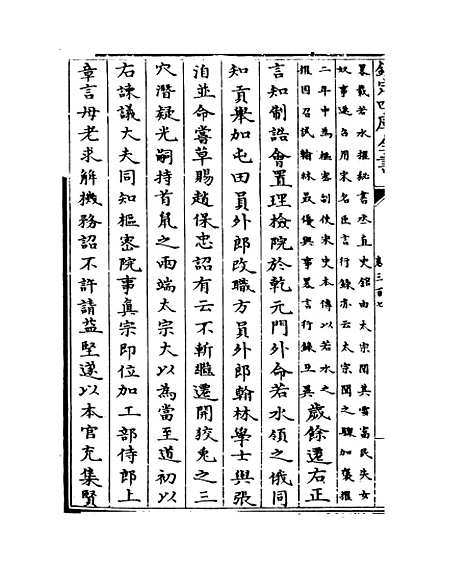 欽定四庫全書
卷三百七
異載若水擢秘書丞直史館由太宗聞其雪富民失女
奴事遂召用宋名臣言行錄亦云太宗聞之驟加褒擢
二年中為樞密副使宋史本傳以若水之
擢因召試翰林最優與事畧言行錄互異
歲餘遷右正
言知制誥會置理檢院於乾元門外命若水領之俄同
知貢舉加屯田員外郎改職方員外郎翰林學士與張
洎並命嘗草賜趙保忠詔有云不斬繼遷開狡兔之三
穴潛疑光嗣持首鼠之兩端太宗大以為當至道初以
右諫議大夫同知樞密院事真宗即位加工部侍郎上
章言母老求解機務詔不許請益堅遂以本官充集賢